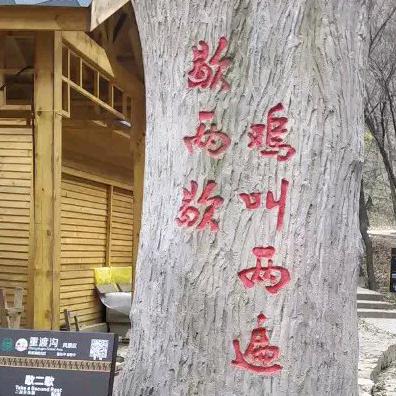 鸡叫两遍
歇两歇
重渡沟 风景区
歇二歇
Take a Second Rest